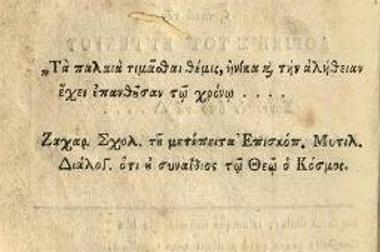 „Τὰ παλαιὰ τιμᾶσθαι θέμις, ἡνίκα ϗ τὴν ἀλήθειαν
ἔχει ἐπανθοῦσαν τῷ χρόνῳ . . . .
Ζαχαρ. Σχολ. τοῦ μετέπειτα Ἐπισκόπ. Μυτιλ.
Διάλογ. ὅτι οὐ συναΐδιος τῷ Θεῷ ὁ Κόσμος.